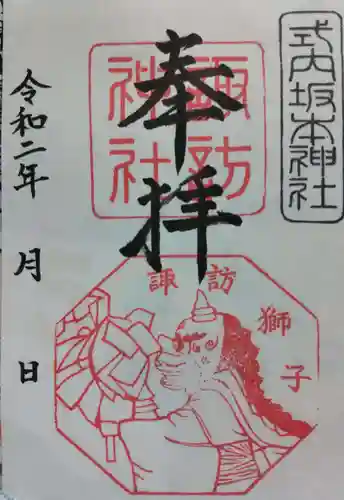 式内坂本神社
奉拝
諏訪
神社
諏訪
獅子
令和二年 月 日